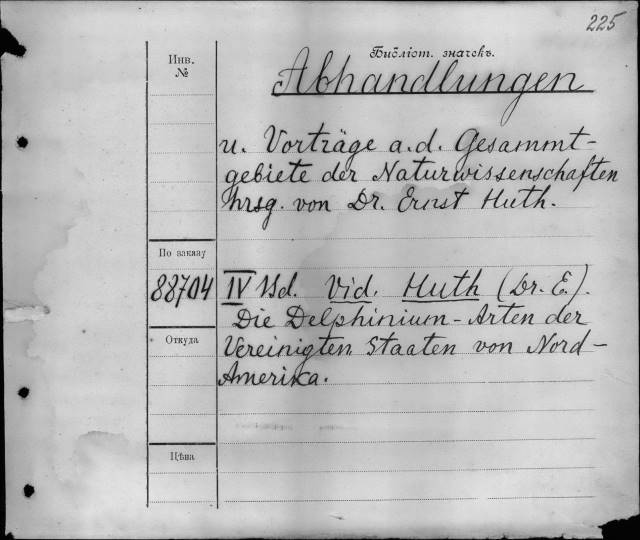 225
Библіот. значекъ.
Инв.
№
Abhandlungen
u. Vorträge a.d. Gesammt-
gebiete der Naturwissenschaften
hrsg. von Dr. Ernst Huth.
По заказу
88704
IV Bd. Vid. Huth (Dr. E.).
Die Delphinium-Arten der
Откуда
Vereinigten Staaten von Nord-
Amerika.
Цѣна